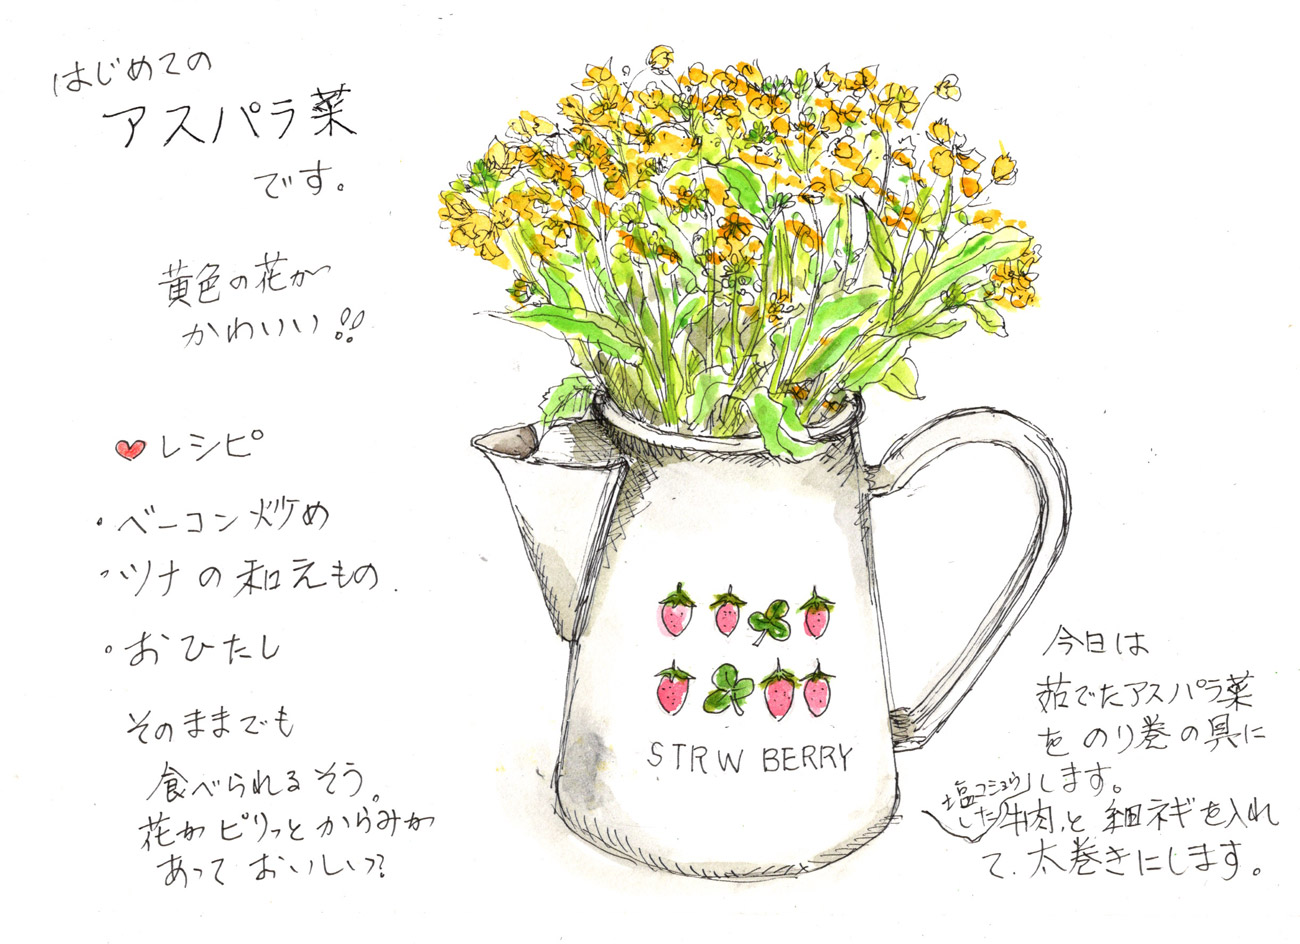 はじめての
アスパラ菜
です。
黄色の花が
かわいい!!
レシピ
・ベーコン炒め
・ツナの和えもの.
・おひたし
そのままでも
食べられるそう。
花がピリッとからみが
あって おいしいっ?
STRW BERRY
今日は
茹でたアスパラ菜
を のり巻の具に
します。
塩コショウ
した牛肉、と 細ネギを入れ
て、太巻きにします。